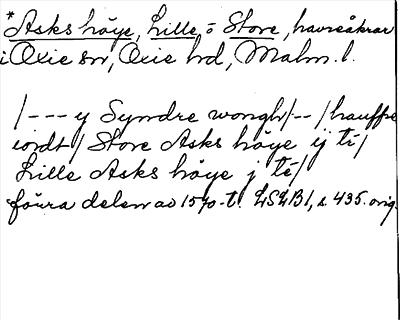 *Asks höye, Lille = Store, havreåkrar
i Oxie sn, Oxie hd, Malm. l.
/--- y Syndre wongh/--/hauffre
iordt/ Store Asks höye ij ti/
Lille Asks höye j ti/
förra delen av 1570-t. LSLB1, s. 435. orig.